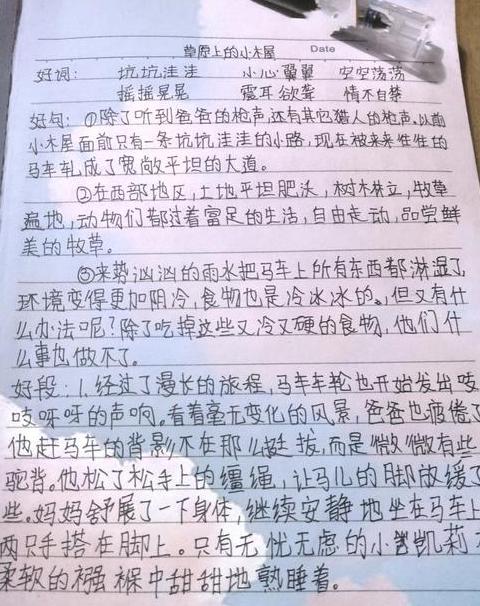 草原上的小木屋 Date
好词: 坑坑洼洼 小心翼翼 空空荡荡
摇摇晃晃 震耳欲聋 情不自禁
好句: ①除了听到爸爸的枪声,还有其它猎人的枪声。以前
小木屋面前只有一条坑坑洼洼的小路,现在被来来往往的
马车轧成了宽敞平坦的大道。
②在西部地区,土地平坦肥沃,树木林立,牧草
遍地,动物们都过着富足的生活,自由走动,品尝鲜
美的牧草。
③来势汹汹的雨水把马车上所有东西都淋湿了,
环境变得更加阴冷,食物也是冷冰冰的。但又有什
么办法呢?除了吃掉这些又冷又硬的食物,他们什
么事也做不了。
好段: 1.经过了漫长的旅程,马车车轮也开始发出吱
吱呀呀的声响。看着毫无变化的风景,爸爸也疲倦了
他赶马车的背影不在那么挺拔,而是微微有些
驼背。他松了松手上的缰绳,让马儿的脚放缓了
些。妈妈舒展了一下身体,继续安静地坐在马车上
两只手搭在脚上。只有无忧无虑的小凯莉
柔软的襁褓中甜甜地熟睡着。